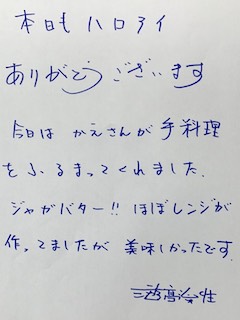 本日も ハロアイ
ありがとうございます
今日は かえさんが 手料理
をふるまってくれました.
ジャガバター!! ほぼレンジが
作ってましたが 美味しかったです.